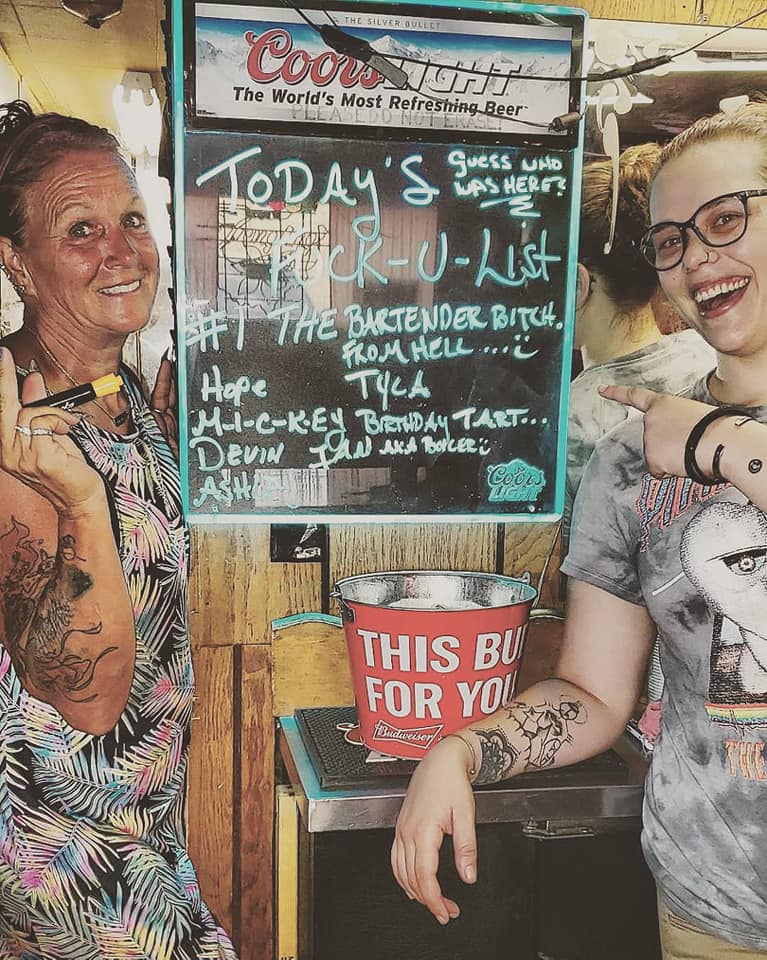 THE SILVER BULLET
Coors LIGHT
The World's Most Refreshing Beer
PLEASE DO NOT ERASE!
TODAY'S
GUESS WHO
WAS HERE?
FUCK-U-LIST
#1 THE BARTENDER BITCH.
FROM HELL....
Hope TYCA
M-I-C-K-EY BIRTHDAY TART...
DEVIN IAN AKA BOYCER
Coors
LIGHT
THIS BU
FOR YOU
Budweiser
THE